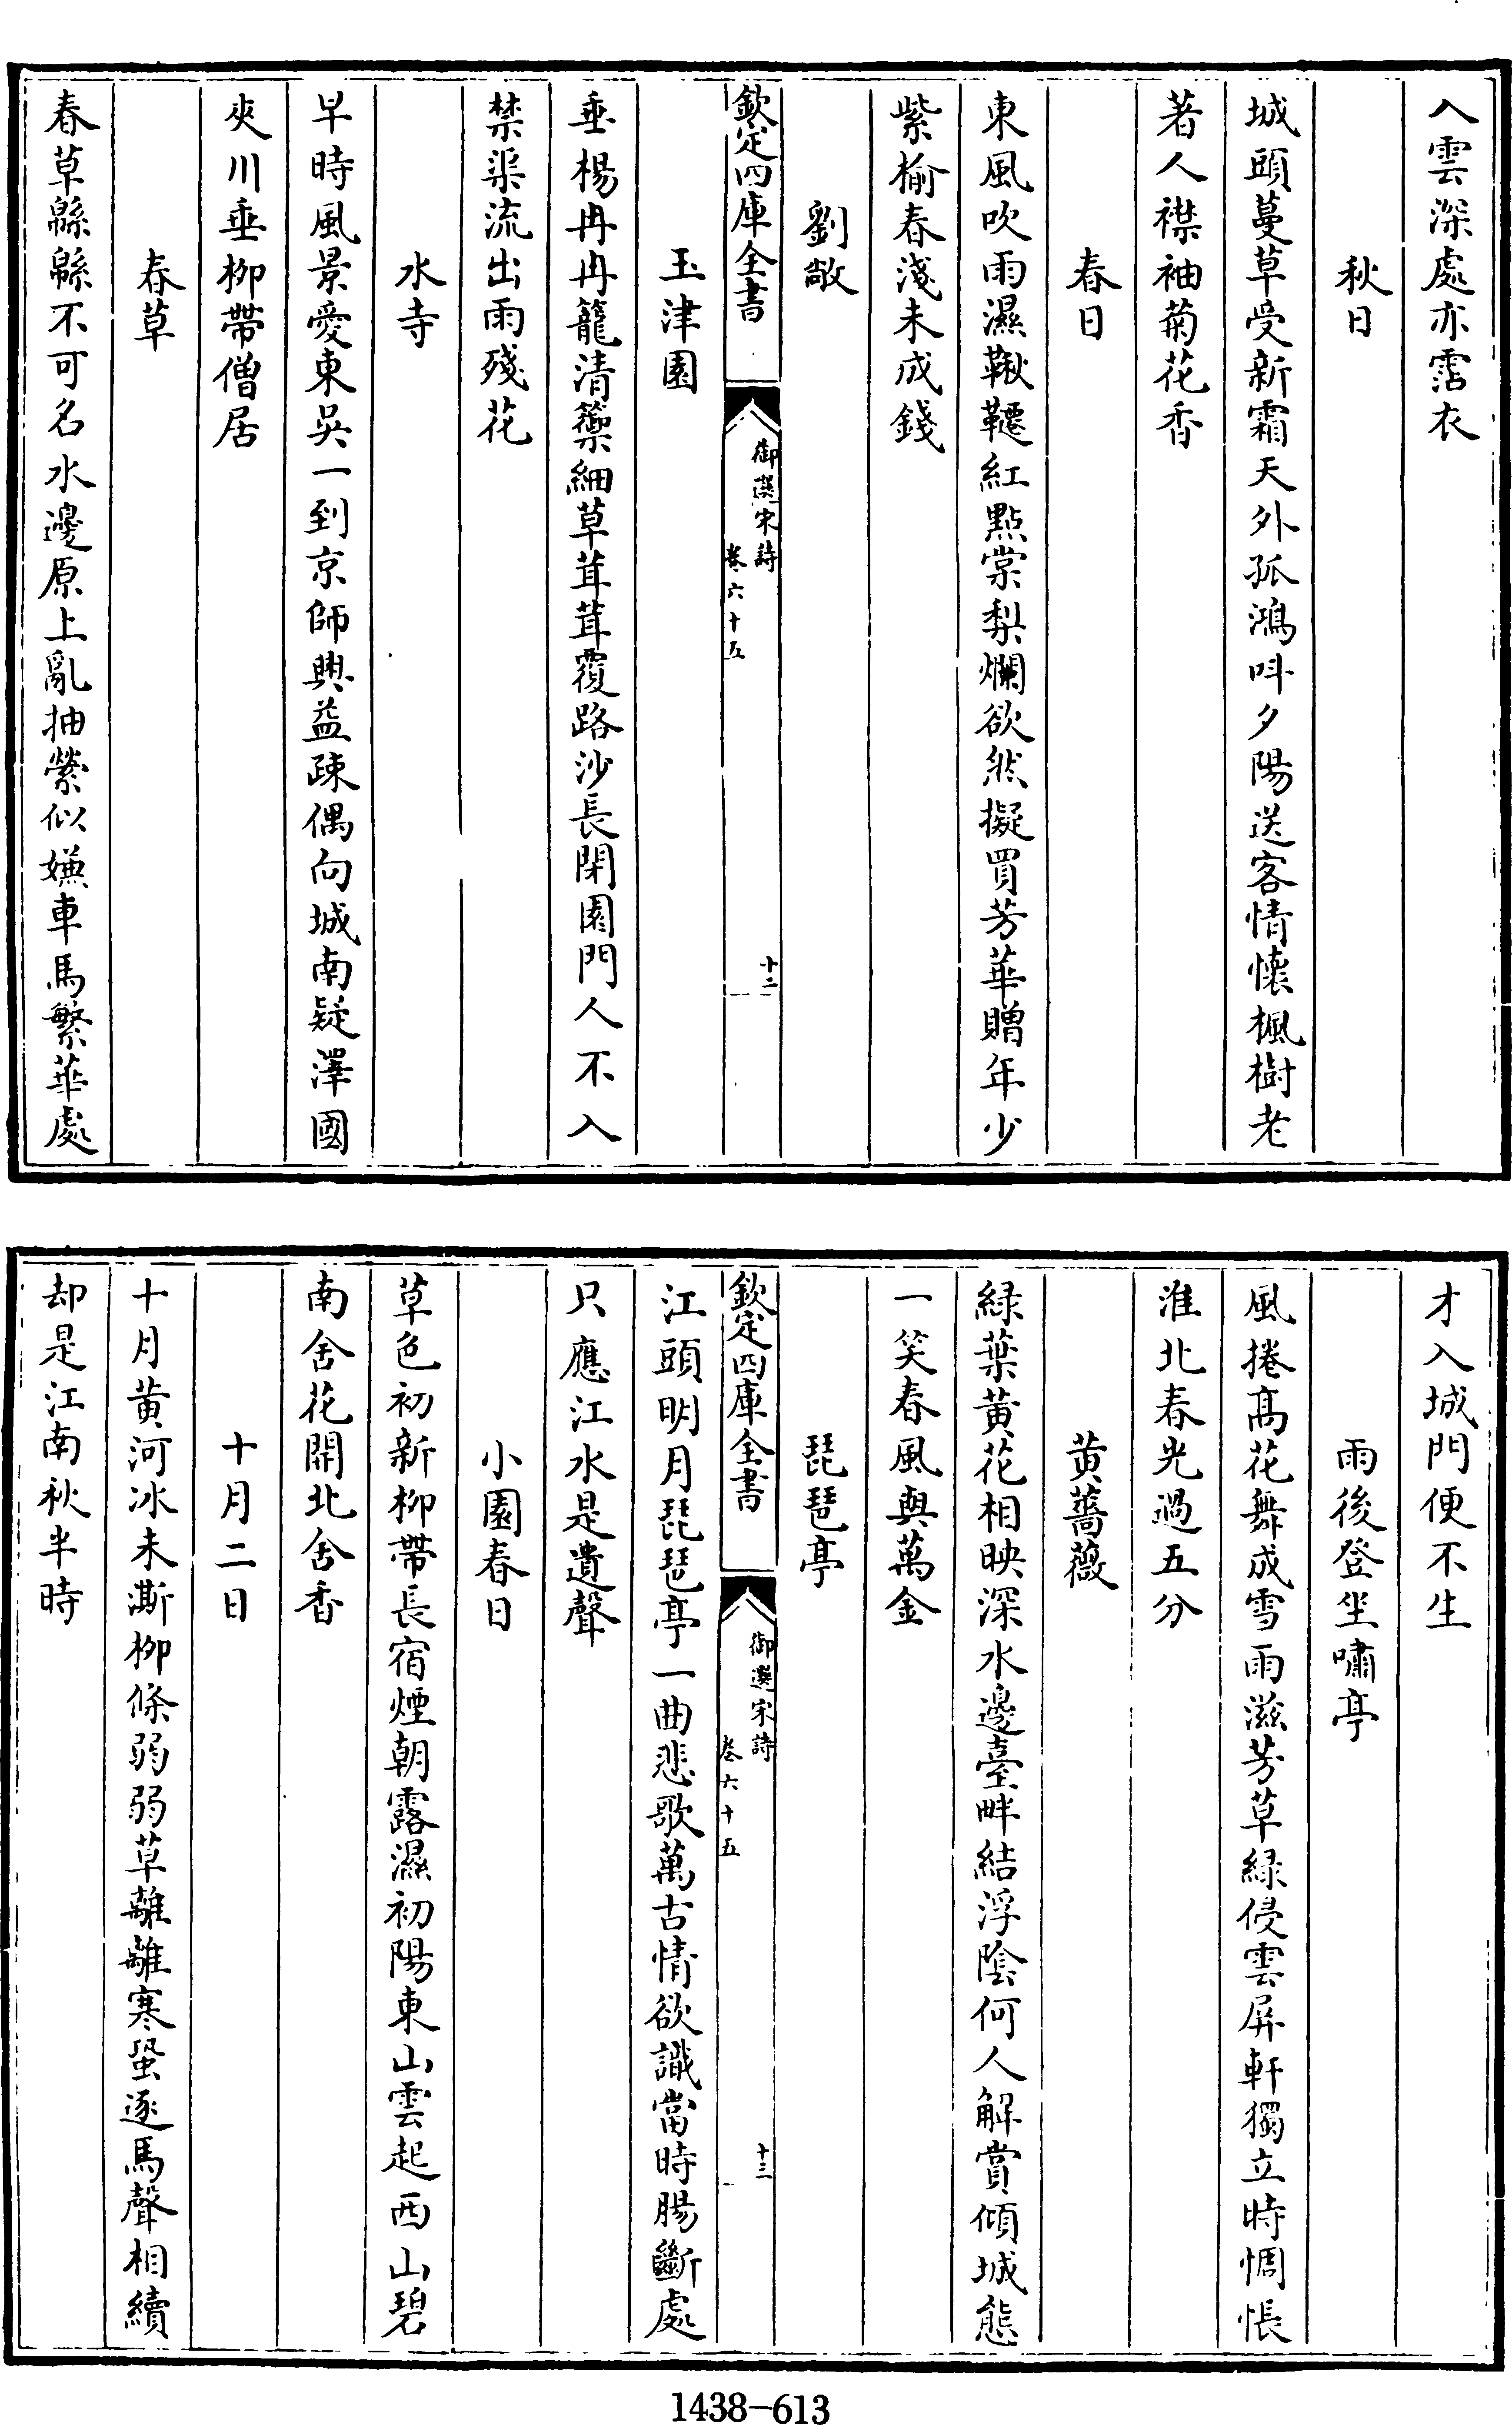 入雲深處亦霑衣
秋日
城頭蔓草受新霜天外孤鴻呌夕陽送客情懷楓樹老
著人襟袖菊花香
春日
東風吹雨濕鞦韆紅點棠梨爛欲然擬買芳華贈年少
紫榆春淺未成錢
劉敞
欽定四庫全書
御選宋詩
卷六十五
十二
玉津園
垂楊冉冉籠清籞細草茸茸覆路沙長閉園門人不入
禁渠流出雨殘花
水寺
早時風景愛東吳一到京師興益疎偶向城南疑澤國
夾川垂柳帶僧居
春草
春草緜緜不可名水邊原上亂抽縈似嫌車馬繁華處
才入城門便不生
雨後登坐嘯亭
風捲髙花舞成雪雨滋芳草緑侵雲屏軒獨立時惆悵
淮北春光過五分
黄薔薇
緑葉黄花相映深水邊臺畔結浮陰何人解賞傾城態
一笑春風與萬金
琵琶亭
欽定四庫全書
御選宋詩
卷六十五
十三
江頭明月琵琶亭一曲悲歌萬古情欲識當時腸斷處
只應江水是遺聲
小園春日
草色初新柳帶長宿煙朝露濕初陽東山雲起西山碧
南舍花開北舍香
十月二日
十月黄河冰未澌柳條弱弱草離離寒蛩逐馬聲相續
却是江南秋半時
1438-613